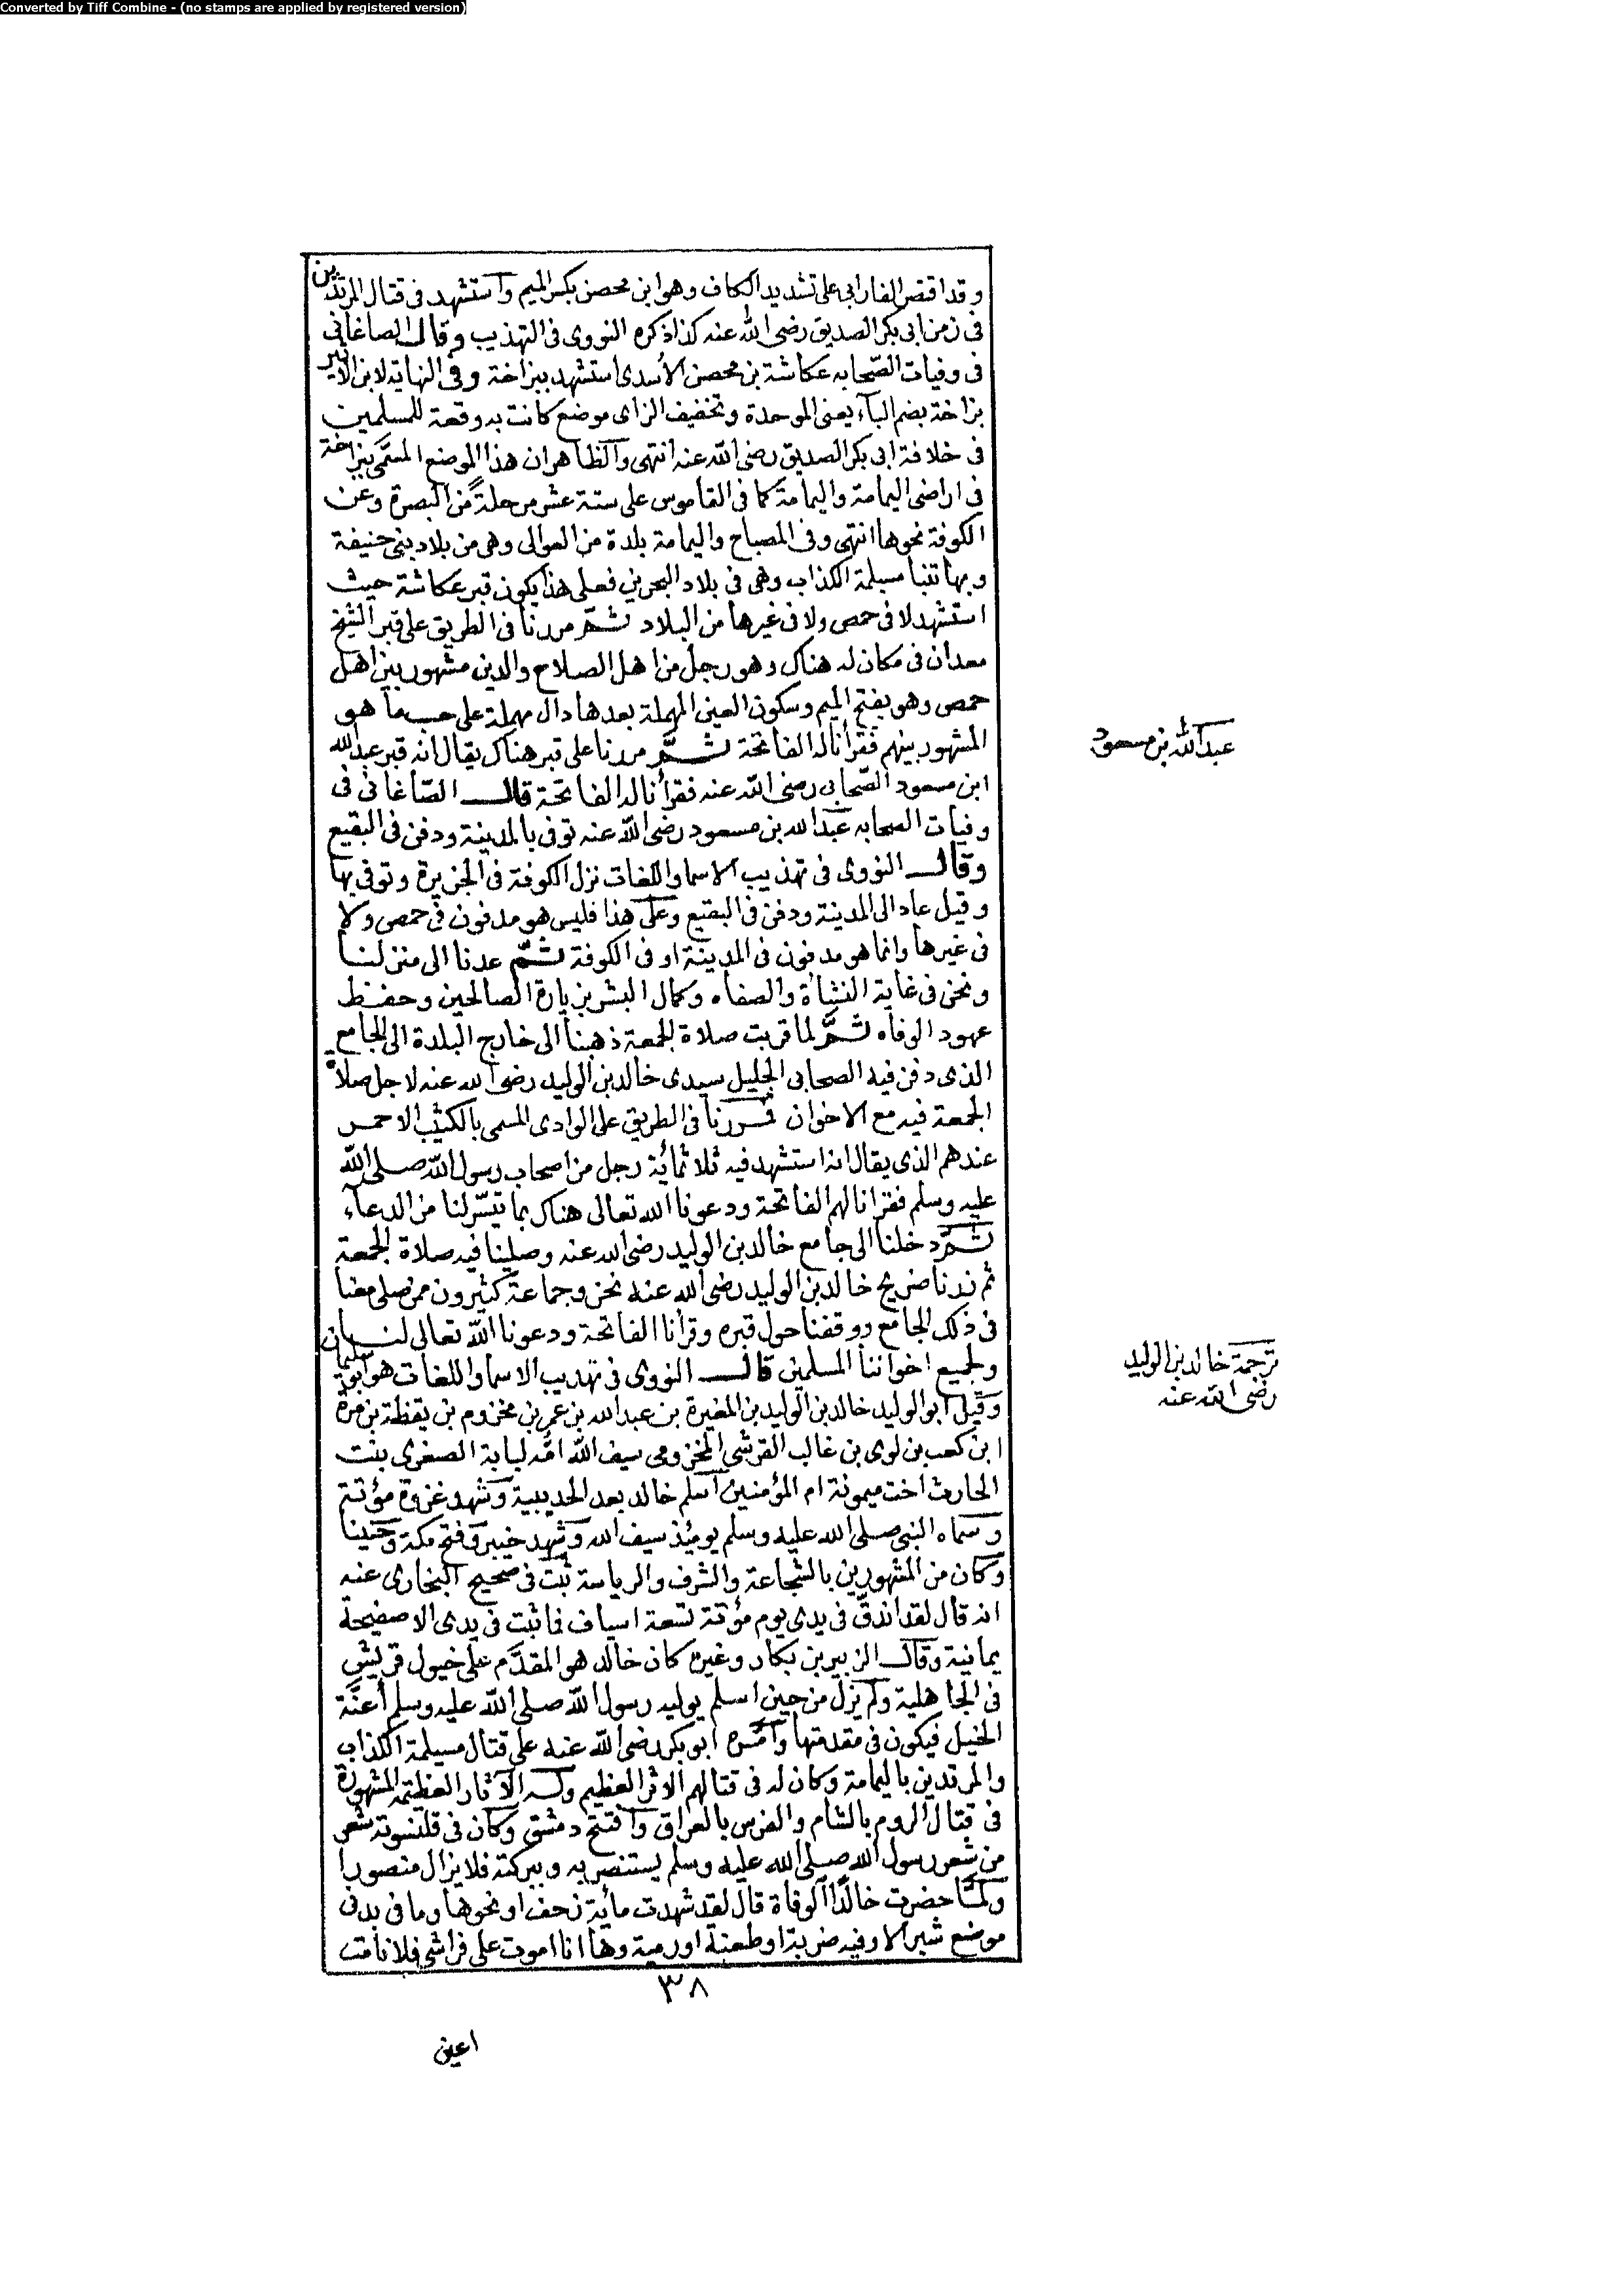 Converted by Tiff Combine - (no stamps are applied by registered version)
وقد اقتصر الفارابي على تشديد الكاف وهو ابن محصن بكسر الميم واستشهد في قتال المرتدين
في زمن ابى بكر الصديق رضى الله عنه كذا ذكره النووى فى التهذيب وقال الصاغانى
فى وفيات الصّحابه عكاشة بن محصن الأسدى استشهد ببزاخة وفى النهاية لابن الاثير
بزاخة بضم البآء يعنى الموحدة وتخفيف الزاى موضع كانت به وقعة للمسلمين
فى خلافة ابى بكر الصديق رضى الله عنه انتهى والظاهر ان هذا الموضع المسمَّى ببزاخة
فى اراضى اليمامة واليمامة كما فى القاموس على ستة عشر مرحلة من البصرة وعن
الكوفة نحوها انتهى وفى المصباح واليمامة بلدة من العوالى وهى من بلاد بنى حنيفة
وبها تنبا مسيلمة الكذاب وهى فى بلاد البحرين فعلى هذا يكون قبر عكاشة حيث
استشهد لا فى حمص ولا فى غيرها من البلاد ثمّ مررنا فى الطريق على قبر الشيخ
معدان فى مكان له هناك وهو رجل من اهل الصلاح والدين مشهور بين اهل
حمص وهو بفتح الميم وسكون العين المهملة بعدها دال مهملة على حسب ما هو
المشهور بينهم فقرأنا له الفاتحة ثمَّ مررنا على قبر هناك يقال انه قبر عبد الله
ابن مسعود الصّحابى رضى الله عنه فقرأنا له الفاتحة قال الصّاغانى فى
وفيات الصحابه عبد الله بن مسعود رضى الله عنه توفى بالمدينة ودفن فى البقيع
وقال النووى فى تهذيب الاسما واللغات نزل الكوفة فى الجزيرة وتوفى بها
وقيل عاد الى المدينة ودفن فى البقيع وعلى هذا فليس هو مدفون فى حمص ولا
فى غيرها وانما هو مدفون فى المدينة او فى الكوفة ثمّ عدنا الى منزلنا
ونحن فى غاية النشأة والصفاء وكمال البشر بزيارة الصالحين وحفظ
عهود الوفاء ثمَّ لما قربت صلاة الجمعة ذهبنا الى خارج البلدة الى الجامع
الذى دفن فيه الصحابى الجليل سيدى خالد بن الوليد رضى الله عنه لاجل صلاة
الجمعة فيه مع الاخوان فمررنا فى الطريق على الوادى المسمى بالكثيب الاحمر
عندهم الذى يقال انه استشهد فيه ثلاثمائة رجل من اصحاب رسول الله صلى الله
عليه وسلم فقرانا لهم الفاتحة ودعونا الله تعالى هناك بما تيسّر لنا من الدعاء
ثمَّ دخلنا الى جامع خالد بن الوليد رضى الله عنه وصلينا فيه صلاة الجمعة
ثم زرنا ضريح خالد بن الوليد رضى الله عنه نحن وجماعة كثيرون ممن صلى معنا
فى ذلك الجامع ووقفنا حول قبره وقرأنا الفاتحة ودعونا الله تعالى لنا
ولجميع اخواننا المسلمين قال النووى فى تهذيب الاسما واللغات هو ابو سليمان
وقيل ابو الوليد خالد بن الوليد بن المغيرة بن عبد الله بن عمر بن مخزوم بن يقظة بن مرة
ابن كعب بن لوى بن غالب القرشى المخزومى سيف الله امّه لبابة الصغرى بنت
الحارث اخت ميمونة ام المؤمنين اسلم خالد بعد الحديبية وشهد غزوة مؤتة
وسماه النبى صلى الله عليه وسلم يومئذ سيف الله وشهد خيبر وفتح مكة وحنينا
وكان من المشهورين بالشجاعة والشرف والرياسة ثبت فى صحيح البخارى عنه
انه قال لقد اندقّ فى يدى يوم مؤتة تسعة اسياف فما ثبت فى يدى الا صفيحة
يمانية وقال الزبير بن بكار وغيره كان خالد هو المقدَّم على خيول قريش
فى الجاهلية ولم يزل من حين اسلم يوليه رسول الله صلى الله عليه وسلم أعنَّة
الخيل فيكون فى مقدمتها وأمّره ابو بكر رضى الله عنه على قتال مسيلمة الكذاب
والمرتدين باليمامة وكان له فى قتالهم الاثر العظيم وله الآثار العظيمة المشهورة
فى قتال الروم بالشام والفرس بالعراق وافتتح دمشق وكان فى قلنسوته شعر
من شعر رسول الله صلى الله عليه وسلم يستنصر به وببركته فلا يزال منصورا
ولمّا حضرت خالدًا الوفاة قال لقد شهدت مائة زحف او نحوها وما فى بدنى
موضع شبر الا وفيه ضربة او طعنة او رمية وها انا اموت على فراشى فلا نامت
عبد الله بن مسعود
ترجمة خالد بن الوليد
رضى الله عنه
٣٨
اعين